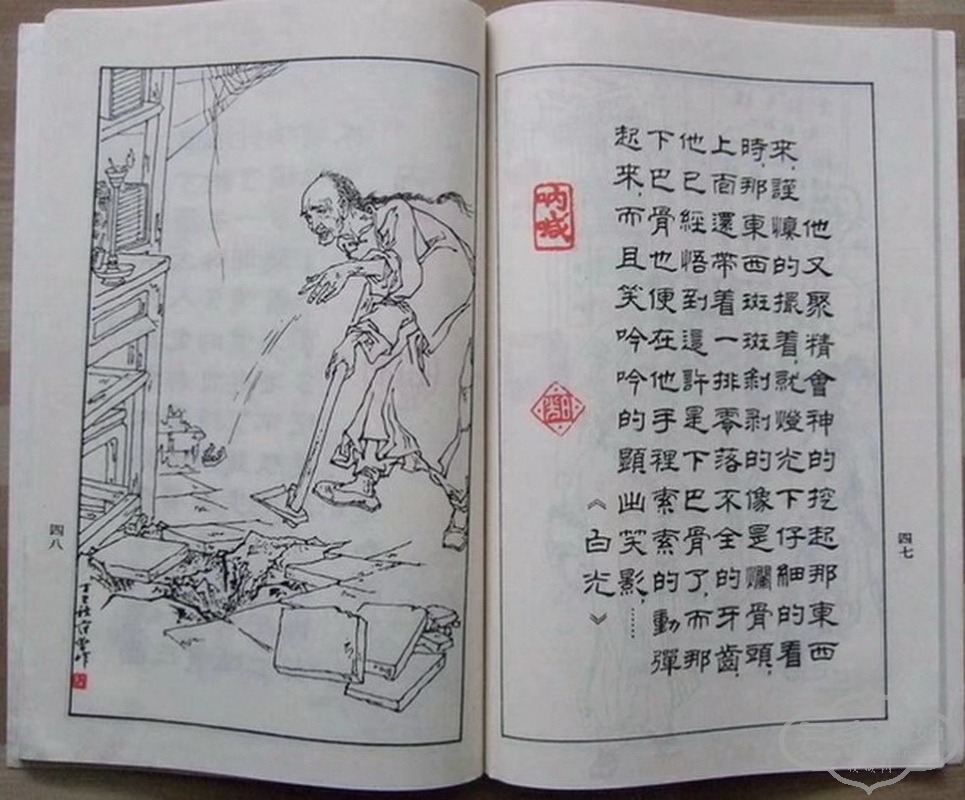 他又聚精會神的挖起那東西
來,謹慎的撮着,就燈光下仔細的看
時,那東西斑斑剝剝的像是爛骨頭,
上面還帶着一排零落不全的牙齒,
他已經悟到這許是下巴骨了,而那
下巴骨也便在他手裡索索的動彈
起來,而且笑吟吟的顯出笑影,……
《白光》
呐喊
白光
四七
四八
丁巳秋范曾作